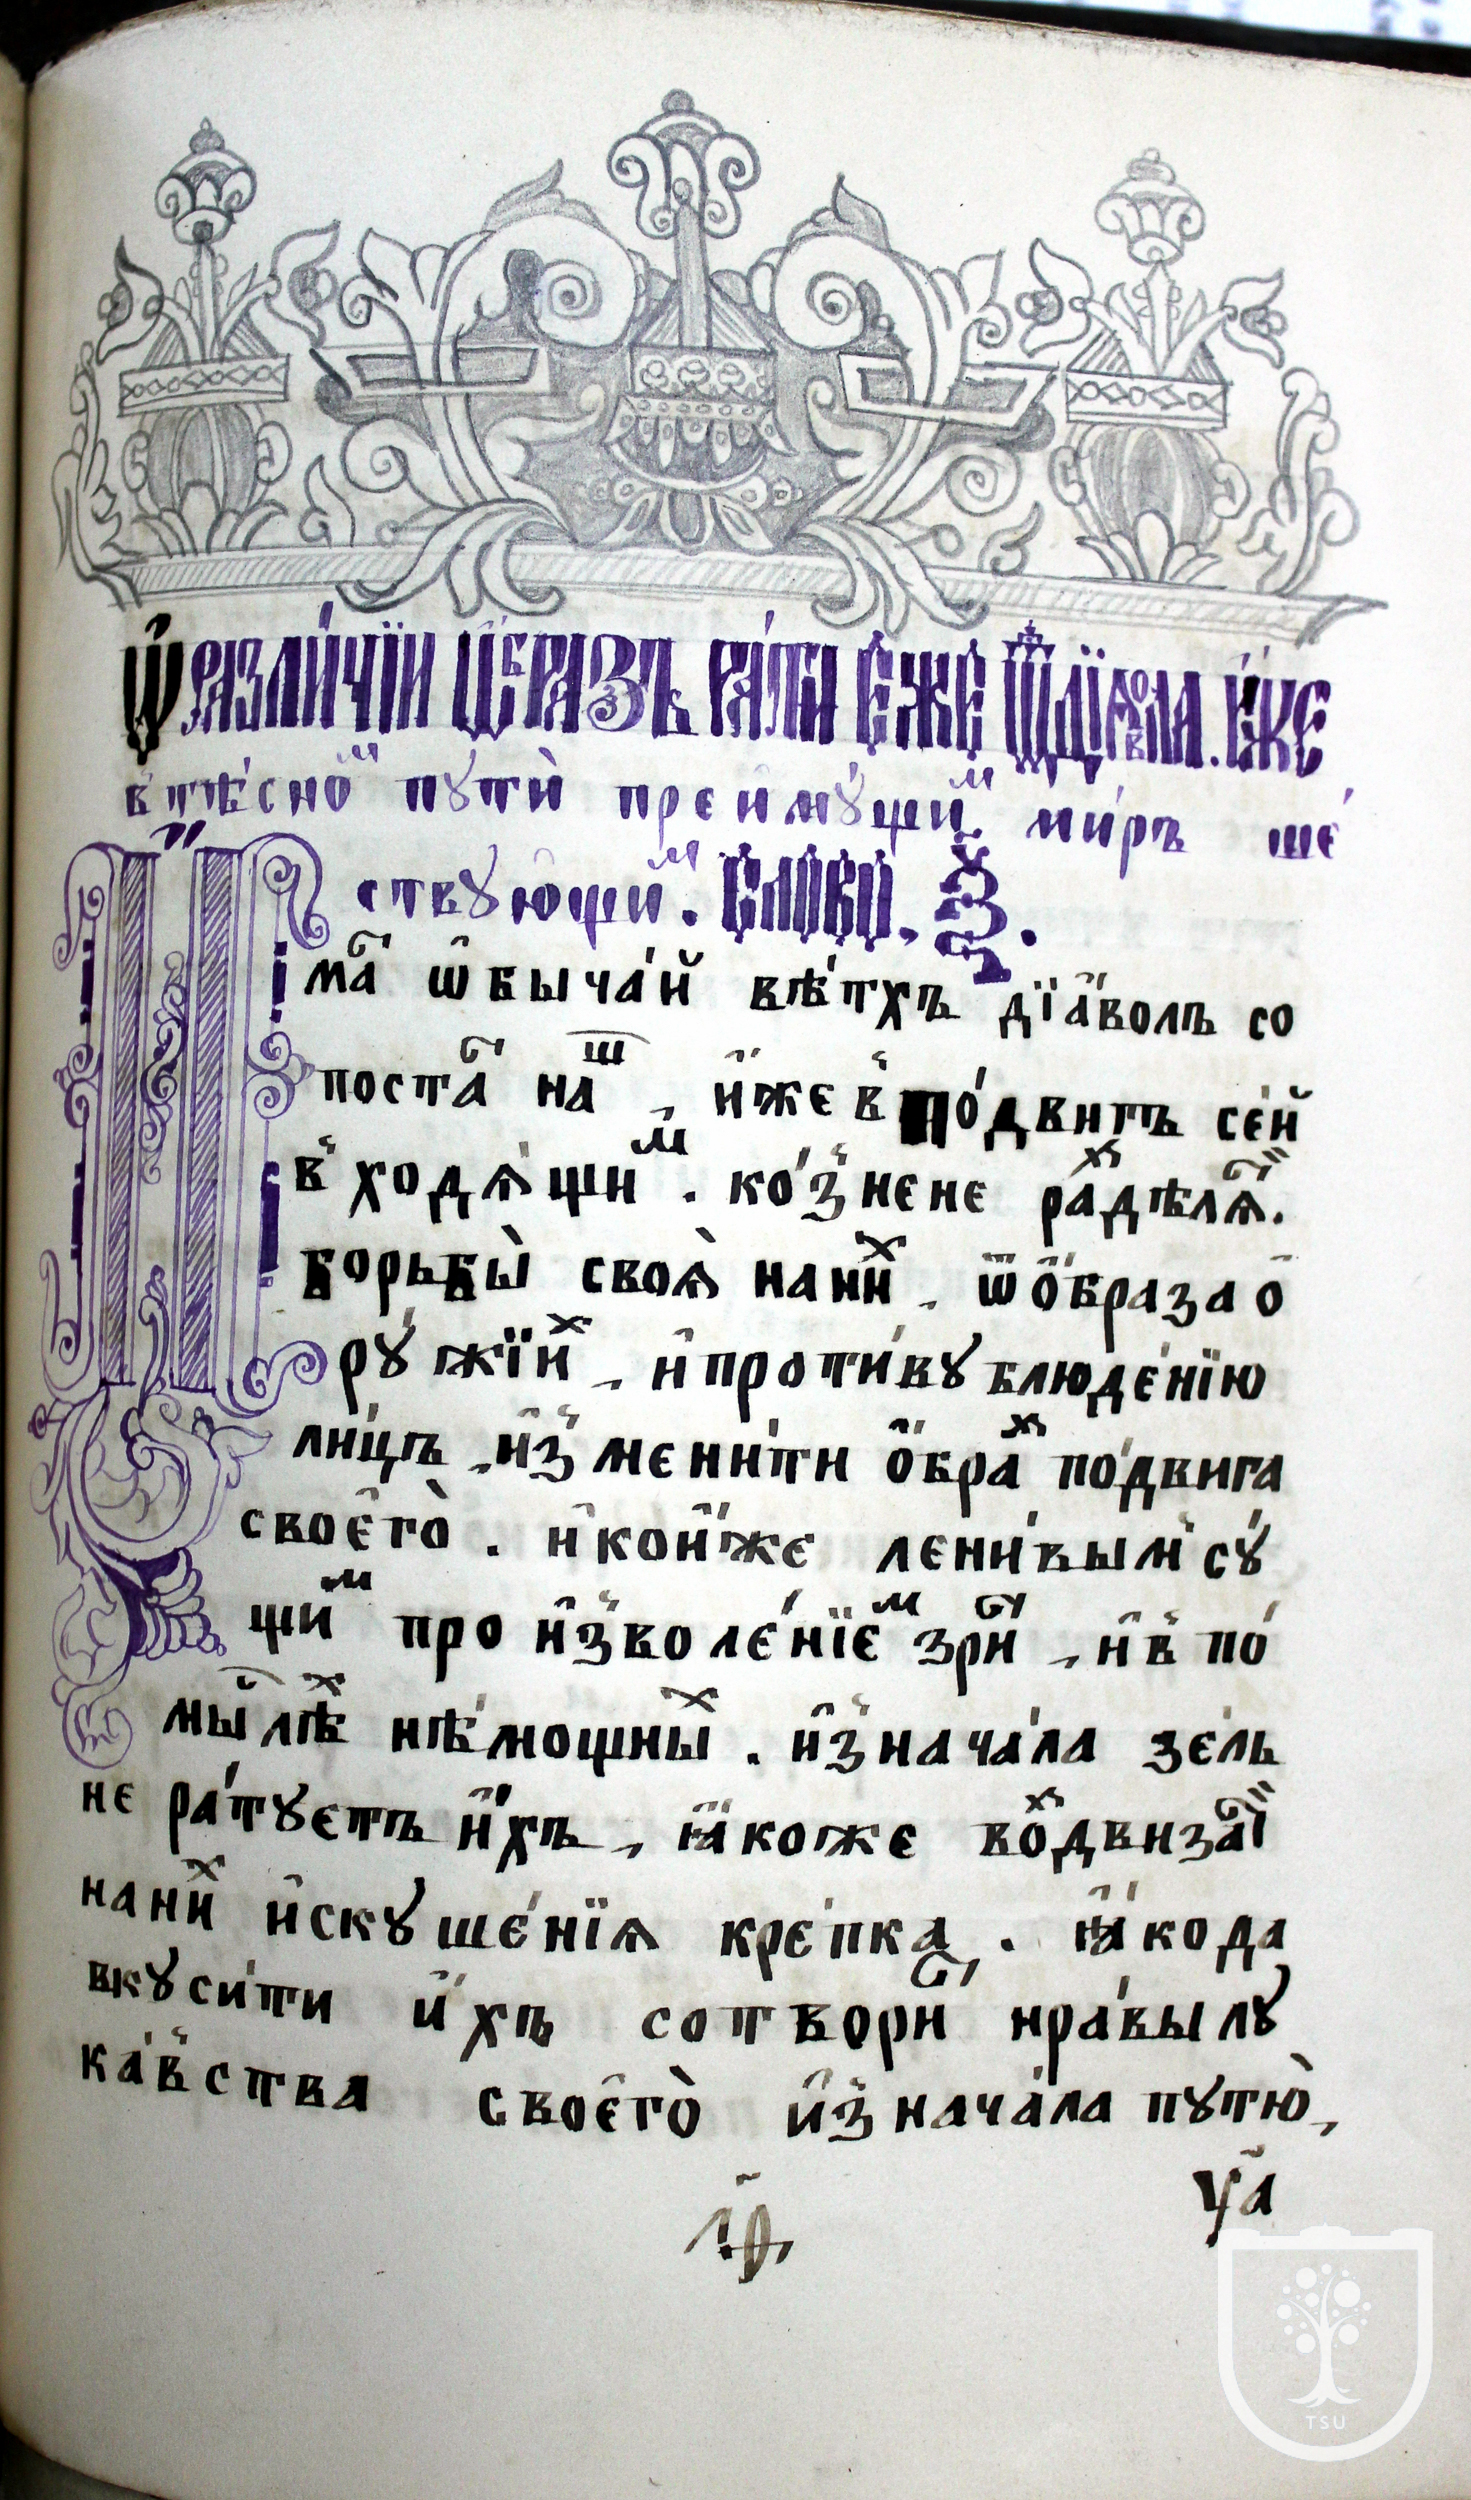 Ѿ разли́чїи ѡ҆́бразъ ра́ти є҆́же ѿ дїа́вола. и҆́же
в̾ тѣ́сноⷨ пꙋтѝ преи҆мꙋ́щиⷨ. ми́ръ ше́
ствꙋ́ю҆щиⷨ. сло́во, ѯ҃.
И҆маⷭ҇ ѡ҆быча́й вѣ́тхъ дїа҆́волъ со
постаⷭ҇ наⷲ҇, и҆́же в̾ по́двигъ се́й
в̾ходѧ́щиⷨ. ко́з̾нене раⷯдѣлѧⷭ҇.
борьбы̀ своѧ̀ нани́ⷯ, ѿ о҆́браза о҆
рꙋ́жїиⷯ, и҆ проти́вꙋ блюде́нїю
ли́цъ, и҆з̾мени́ти о҆́браⷯ по́двига
своє҆гѐ. и҆ кои҆́же лени́вым̾ сꙋ́
щиⷨ про и҆з̾воле́нїеⷨ зри́ⷭ҇, и҆ в̾ по́
мы́лѣⷯ нѣ́мощныⷯ. и҆з̾ нача́ла зе́ль
не ра́тꙋетъ и҆́хъ, ꙗ҆́коже воⷯдвиза́ⷭ҇ї
нани́ⷯ и҆скꙋше́нїѧ кре́пка. ꙗ҆́ко да
вкꙋси́ти и҆́хъ сотвори́ⷭ҇ нра́вы лꙋ
ка́в̾ства своє҆гѐ и҆з̾ нача́ла пꙋтю̀,
ча
TSU